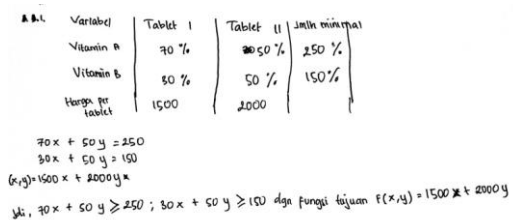 Variabel Tablet I Tablet II Jmlh minimal
Vitamin A 70 % 50 % 250 %
Vitamin B 30 % 50 % 150 %
Harga per tablet 1500 2000
70x + 50y = 250
30x + 50y = 150
(x,y) = 1500x + 2000y
Jdi, 70x + 50y ≥ 250 ; 30x + 50y ≥ 150 dgn fungsi tujuan F(x,y) = 1500x + 2000y